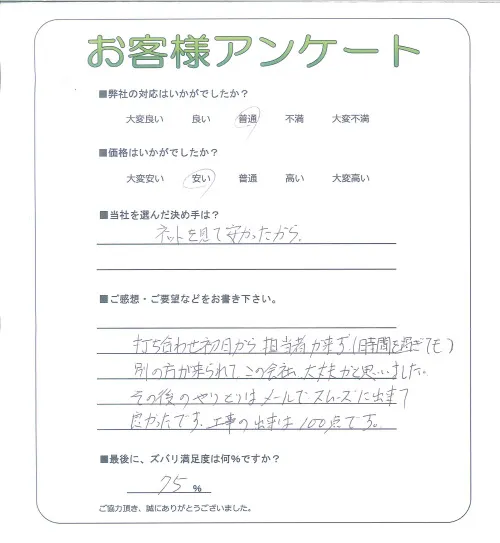 お客様アンケート
■弊社の対応はいかがでしたか？
大変良い 良い 普通 不満 大変不満
■価格はいかがでしたか？
大変安い 安い 普通 高い 大変高い
■当社を選んだ決め手は？
ネットを見て安かったから。
■ご感想・ご要望などをお書き下さい。
打ち合わせ初日から担当者が来ず(1時間を過ぎても)
別の方が来られて、この会社、大丈夫かと思いました。
その後のやりとりはメールでスムーズに出来て
良かったです。工事の出来は100点です。
■最後に、ズバリ満足度は何％ですか？
75 %
ご協力頂き、誠にありがとうございました。